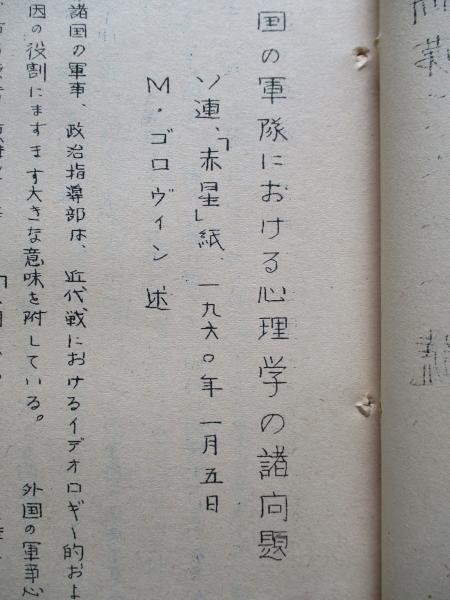 国の軍隊における心理学の諸问題
ソ連、「赤星」紙、一九六〇年 一月五日
M・ゴロヴィン 述
諸国の軍事、政治指導部は、近代戦におけるイデオロギー的およ
因の役割にますます大きな意味を附している。 外国の軍事心